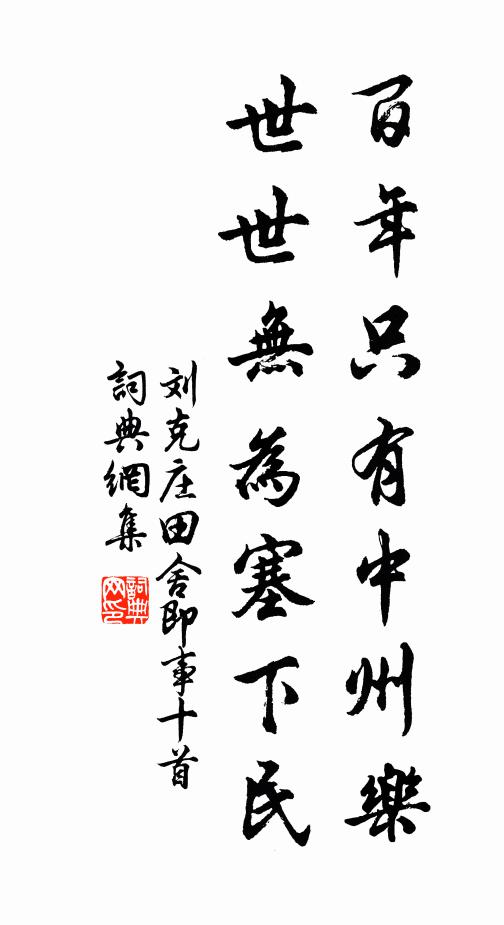 百年只有中州樂
世世無為塞下民
刘克庄田舍即事十首
詞典網集
詞典网印